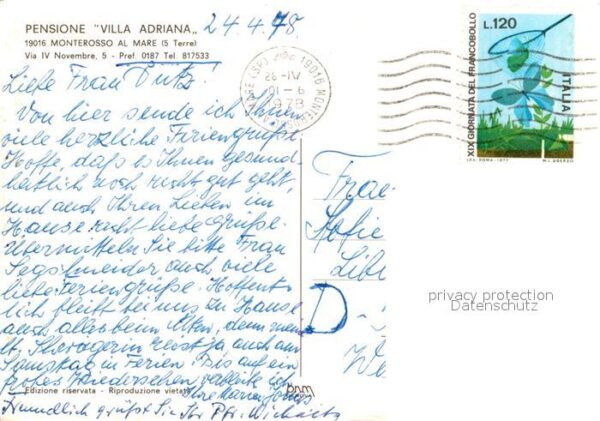 PENSIONE "VILLA ADRIANA" 24.4.78.
19016 MONTEROSSO AL MARE (5 Terre)
Via IV Novembre, 5 - Pref. 0187 Tel 817533
Liebe Frau Putz
Von hier sende ich Ihnen
viele herzliche Feriengrüße
Hoffe, daß es Ihnen gesund-
heitlich noch recht gut geht,
und auch Ihren Lieben im
Hause recht liebe Grüße.
Übermitteln Sie bitte Frau
auch viele
liebe Feriengrüße. Hoffent-
lich bleibt bei uns zu Hause
auch alles beim Alten, denn
ist ja auch am
Samstag in Ferien. Bis auf ein
frohes Wiedersehen verbleibe ich
Ihre
Edizione riservata - Riproduzione vietata
Freundlich grüßt Sie Ihr
19016 MONTEROSSO
26-IV
1978
L.120
XIX GIORNATA DEL FRANCOBOLLO
ITALIA
I.P.S. ROMA 1977
Frau
Sofie
D-
We
privacy protection
Datenschutz